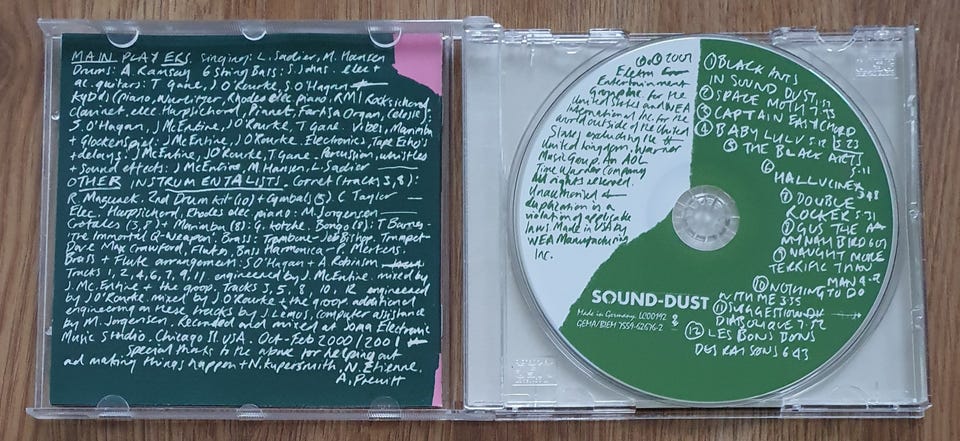 MAIN PLAYERS. singing: L. Sadier, M. Hansen
Drums: A. Ramsay 6 string Bass: S. Johns. elec +
ac. guitars: T Gane, J O'Rourke, S. O'Hagan
Kybds (piano, Wurlitzer, Rhodes elec piano, RMI Rocksichord,
Clavinet, elec Harpsichord, Pianet, Farfisa Organ, Celeste):
S. O'Hagan, J McEntire, J O'Rourke, T Gane. Vibes, Marimba
+ Glockenspiel: J McEntire, J O'Rourke. Electronics, Tape Echo's
+ delays: J McEntire, J O'Rourke, T Gane. Percussion, whistles
+ Sound effects: J McEntire, M. Hansen, L. Sadier
OTHER INSTRUMENTALISTS. Cornet (tracks 3, 8):
R. Mazurek. 2nd Drum kit (10) + Cymbals (5). C Taylor
Elec. Harpsichord, Rhodes elec piano: M. Jorgensen
Crotales (3, 8), Marimba (8): G. Kotche. Bongo (8): T Barnes-
The Immortal 6-Weapon: Brass: Trombone-Jeb Bishop, Trumpet-
Dave Max Crawford, Flute, Bass Harmonica: P Mertens
Brass + Flute arrangement: S O'Hagan + A Robinson
Tracks 1, 2, 4, 6, 7, 9, 11 engineered by J. McEntire. mixed by
J. McEntire + the groop. Tracks 3, 5, 8, 10, 12 engineered
by J O'Rourke. mixed by J O'Rourke + the groop. additional
engineering on these tracks by J Lemos, computer assistance
by M. Jorgensen. Recorded and mixed at Soma Electronic
Music Studio. Chicago Il. USA. Oct-Feb 2000/2001
special thanks to the above for helping out
and making things happen + N. Kupersmith, N. Etienne,
A. Prewitt
℗© 2001
Elektra
Entertainment
Group Inc. for the
United States and WEA
International Inc. for the
world outside of the United
States excluding the
United Kingdom. Warner
Music Group, An AOL
Time Warner Company
All rights reserved.
Unauthorised
duplication is a
violation of applicable
laws. Made in USA by
WEA Manufacturing
Inc.
① BLACK ANTS
IN SOUND DUST
② SPACE MOTH 7:35
③ CAPTAIN EASYCHORD
④ BABY LULU 5:13 5:33
⑤ THE BLACK ARTS
5:11
⑥
HALLUCINEX
3:48
⑦ DOUBLE
ROCKER 5:31
⑧ GUS THE
MYNAH BIRD 6:07
⑨ NAUGHT MORE
TERRIFIC THAN
MAN 4:
⑩ NOTHING TO DO
WITH ME 3:35
⑪ SUGGESTION
DIABOLIQUE 7:52
⑫ LES BONS BONS
DES RAISONS 6:43
SOUND-DUST
Made in Germany. LC00192
GEMA/BIEM 7559-62676-2